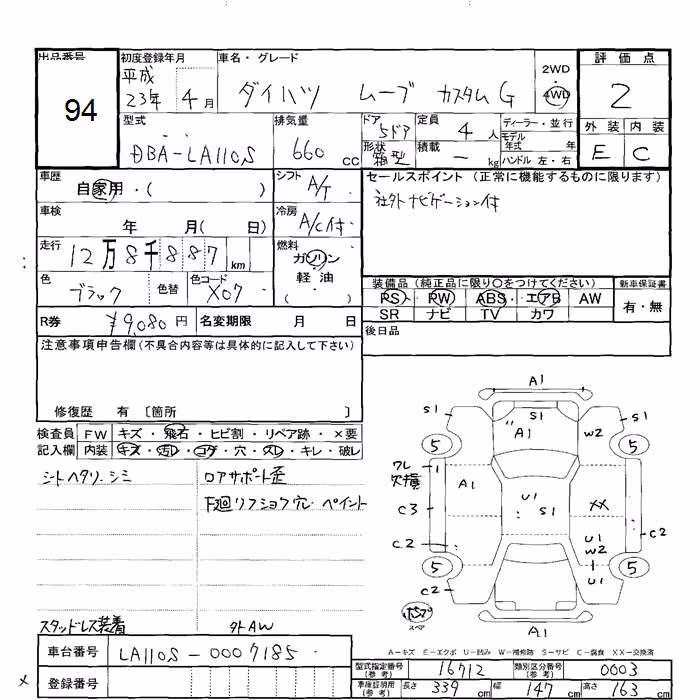 出品番号 初度登録年月 車名・グレード 評価点
94
平成 23年 4月
ダイハツ ムーブ カスタムG
2WD
4WD
2
外装 内装
E C
型式 排気量 ドア 定員 ディーラー・並行
DBA-LA110S 660 cc 5ドア 4人
モデル年式 年
形状 箱型 積載 - kg ハンドル 左・右
車歴 自家用・( ) シフト A/T セールスポイント(正常に機能するものに限ります)
社外ナビゲーション付
車検 年 月(日) 冷房 A/C付
走行 12万8千887 km 燃料 ガソリン
軽油
・( )
色 ブラック 色替 色コード X07
装備品(純正品に限り○をつけてください) 新車保証書
PS PW ABS エアB AW 有・無
SR ナビ TV カワ
R券 ¥9,080円 名変期限 月 日 後日品
注意事項申告欄(不具合内容等は具体的に記入して下さい)
修復歴 有 〔箇所 〕
検査員 FW キズ・飛石・ヒビ割・リペア跡・×要
記入欄 内装 キズ・汚レ・コゲ・穴・スレ・キレ・破レ
シートヘタリ、シミ ロアサポート歪
下廻リフショク穴、ペイント
スタッドレス装着 外AW
A1
S1 S1 S1
A1 W2
5 5
ワレ欠損 1
A1 U1 S1 XX
C3
C2 U1 W2 C2
5 U1 5
C2
スペア
A1
A-キズ E-エクボ U-凹み W-補修跡 S-サビ C-腐食 XX-交換済
車台番号 LA110S-0007185
登録番号
型式指定番号(参考) 16712 類別区分番号(参考) 0003
車庫証明用(参考) 長さ 339 cm 幅 147 cm 高さ 163 cm